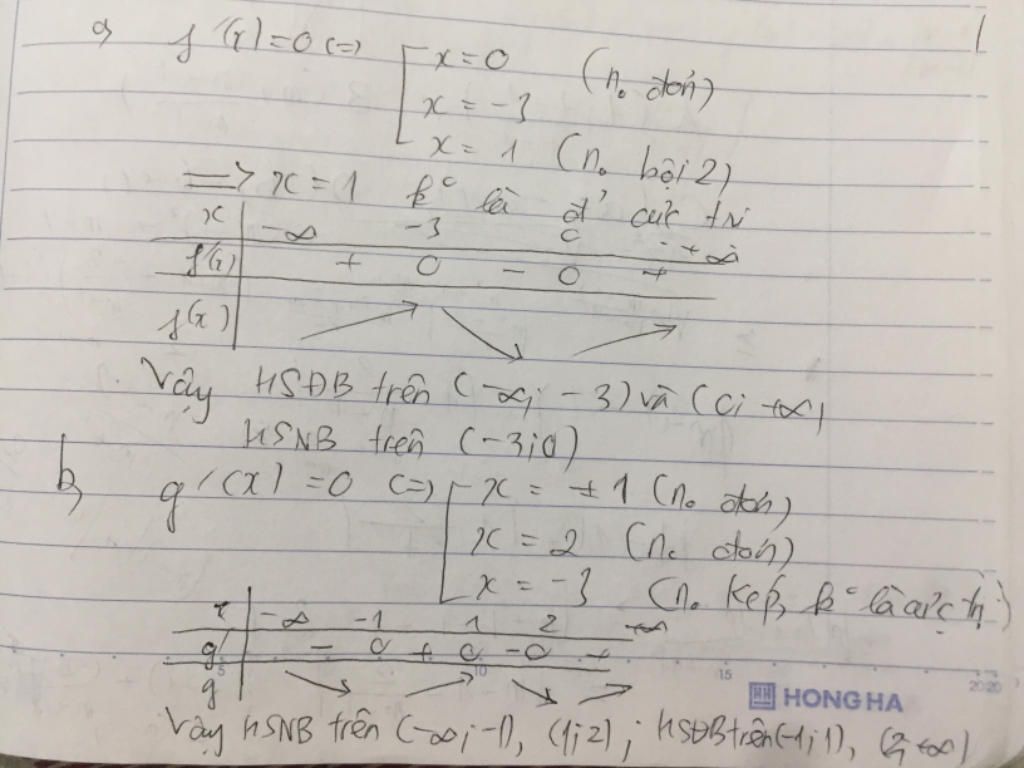 a, f'(x)=0 <=> [ x=0 (n. đơn)
x = -3
x = 1 (n. bội 2)
=> x=1 k° là đ' cực trị
x | -∞ -3 0 +∞
f'(x) | + 0 - 0 +
f(x) | ↗ ↘ ↗
Vậy HSĐB trên (-∞; -3) và (0; +∞)
HSNB trên (-3; 0)
b, g'(x) = 0 <=> [ x = ±1 (n. đơn)
x = 2 (n. đơn)
x = -3 (n. kép, k° là cực trị)
x | -∞ -1 1 2 +∞
g' | - 0 + 0 - 0 +
g | ↘ ↗ ↘ ↗
5 10 15 2020
HONG HA
Vậy HSNB trên (-∞; -1), (1; 2); HSĐB trên (-1; 1), (2; +∞)